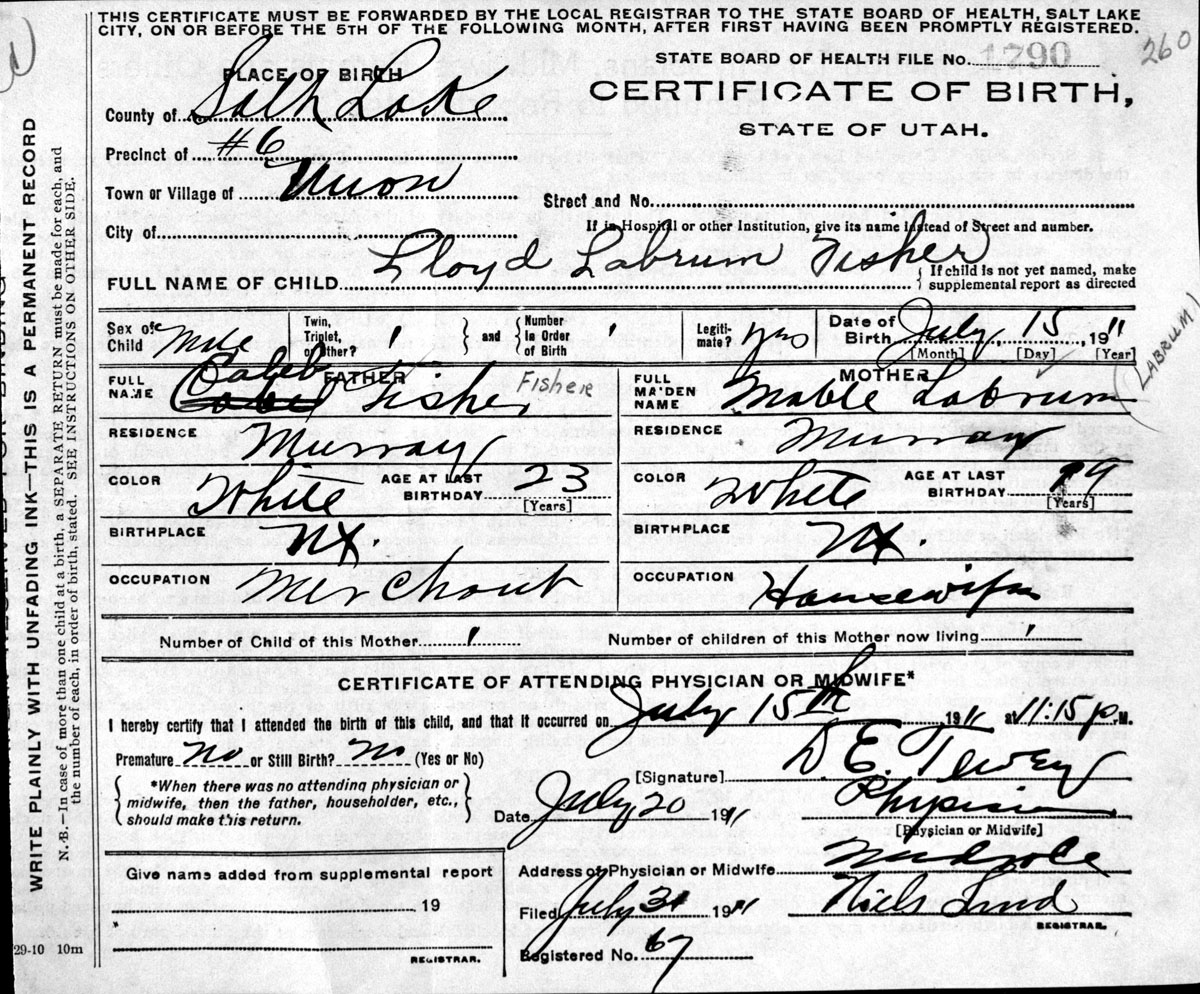 THIS CERTIFICATE MUST BE FORWARDED BY THE LOCAL REGISTRAR TO THE STATE BOARD OF HEALTH, SALT LAKE
CITY, ON OR BEFORE THE 5TH OF THE FOLLOWING MONTH, AFTER FIRST HAVING BEEN PROMPTLY REGISTERED.
260
STATE BOARD OF HEALTH FILE No. 1790
CERTIFICATE OF BIRTH,
STATE OF UTAH.
PLACE OF BIRTH
County of Salt Lake
Precinct of #6
Town or Village of Union
City of
Street and No.
If in Hospital or other Institution, give its name instead of Street and number.
FULL NAME OF CHILD Lloyd Labrum Fisher
{ If child is not yet named, make
supplemental report as directed
Sex of Child Male
Twin, Triplet, or other? 1
and
Number in Order of Birth 1
Legiti-mate? yes
Date of Birth July 15, 1911
[Month] [Day] [Year]
(LABRUM)
FATHER
FULL NAME Caleb Fisher
Fisher
RESIDENCE Murray
COLOR White
AGE AT LAST BIRTHDAY 23
[Years]
BIRTHPLACE
OCCUPATION Merchant
MOTHER
FULL MAIDEN NAME Mable Labrum
RESIDENCE Murray
COLOR White
AGE AT LAST BIRTHDAY 19
[Years]
BIRTHPLACE
OCCUPATION Housewife
Number of Child of this Mother 1
Number of children of this Mother now living 1
CERTIFICATE OF ATTENDING PHYSICIAN OR MIDWIFE*
I hereby certify that I attended the birth of this child, and that it occurred on July 15th 1911 at 11:15 p. M.
Premature No or Still Birth? No (Yes or No)
*When there was no attending physician or
midwife, then the father, householder, etc.,
should make this return.
[Signature] D. E.
Date July 20 1911
[Physician or Midwife]
Address of Physician or Midwife Midvale
Filed July 31 1911 Niels Lind
REGISTRAR.
Registered No. 67
Give name added from supplemental report
19
REGISTRAR.
29-10 10m
WRITE PLAINLY WITH UNFADING INK—THIS IS A PERMANENT RECORD
N. B.—In case of more than one child at a birth, a SEPARATE RETURN must be made for each, and
the number of each, in order of birth, stated. SEE INSTRUCTIONS ON OTHER SIDE.